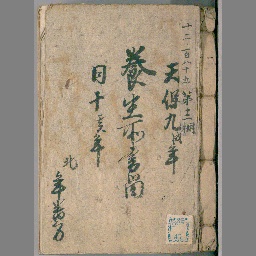 十二百八十五
第十三棚
天保九戌年
養生所書留
同十亥年
北
年番方